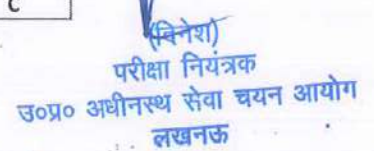 C
(विनेश)
परीक्षा नियंत्रक
उ०प्र० अधीनस्थ सेवा चयन आयोग
लखनऊ